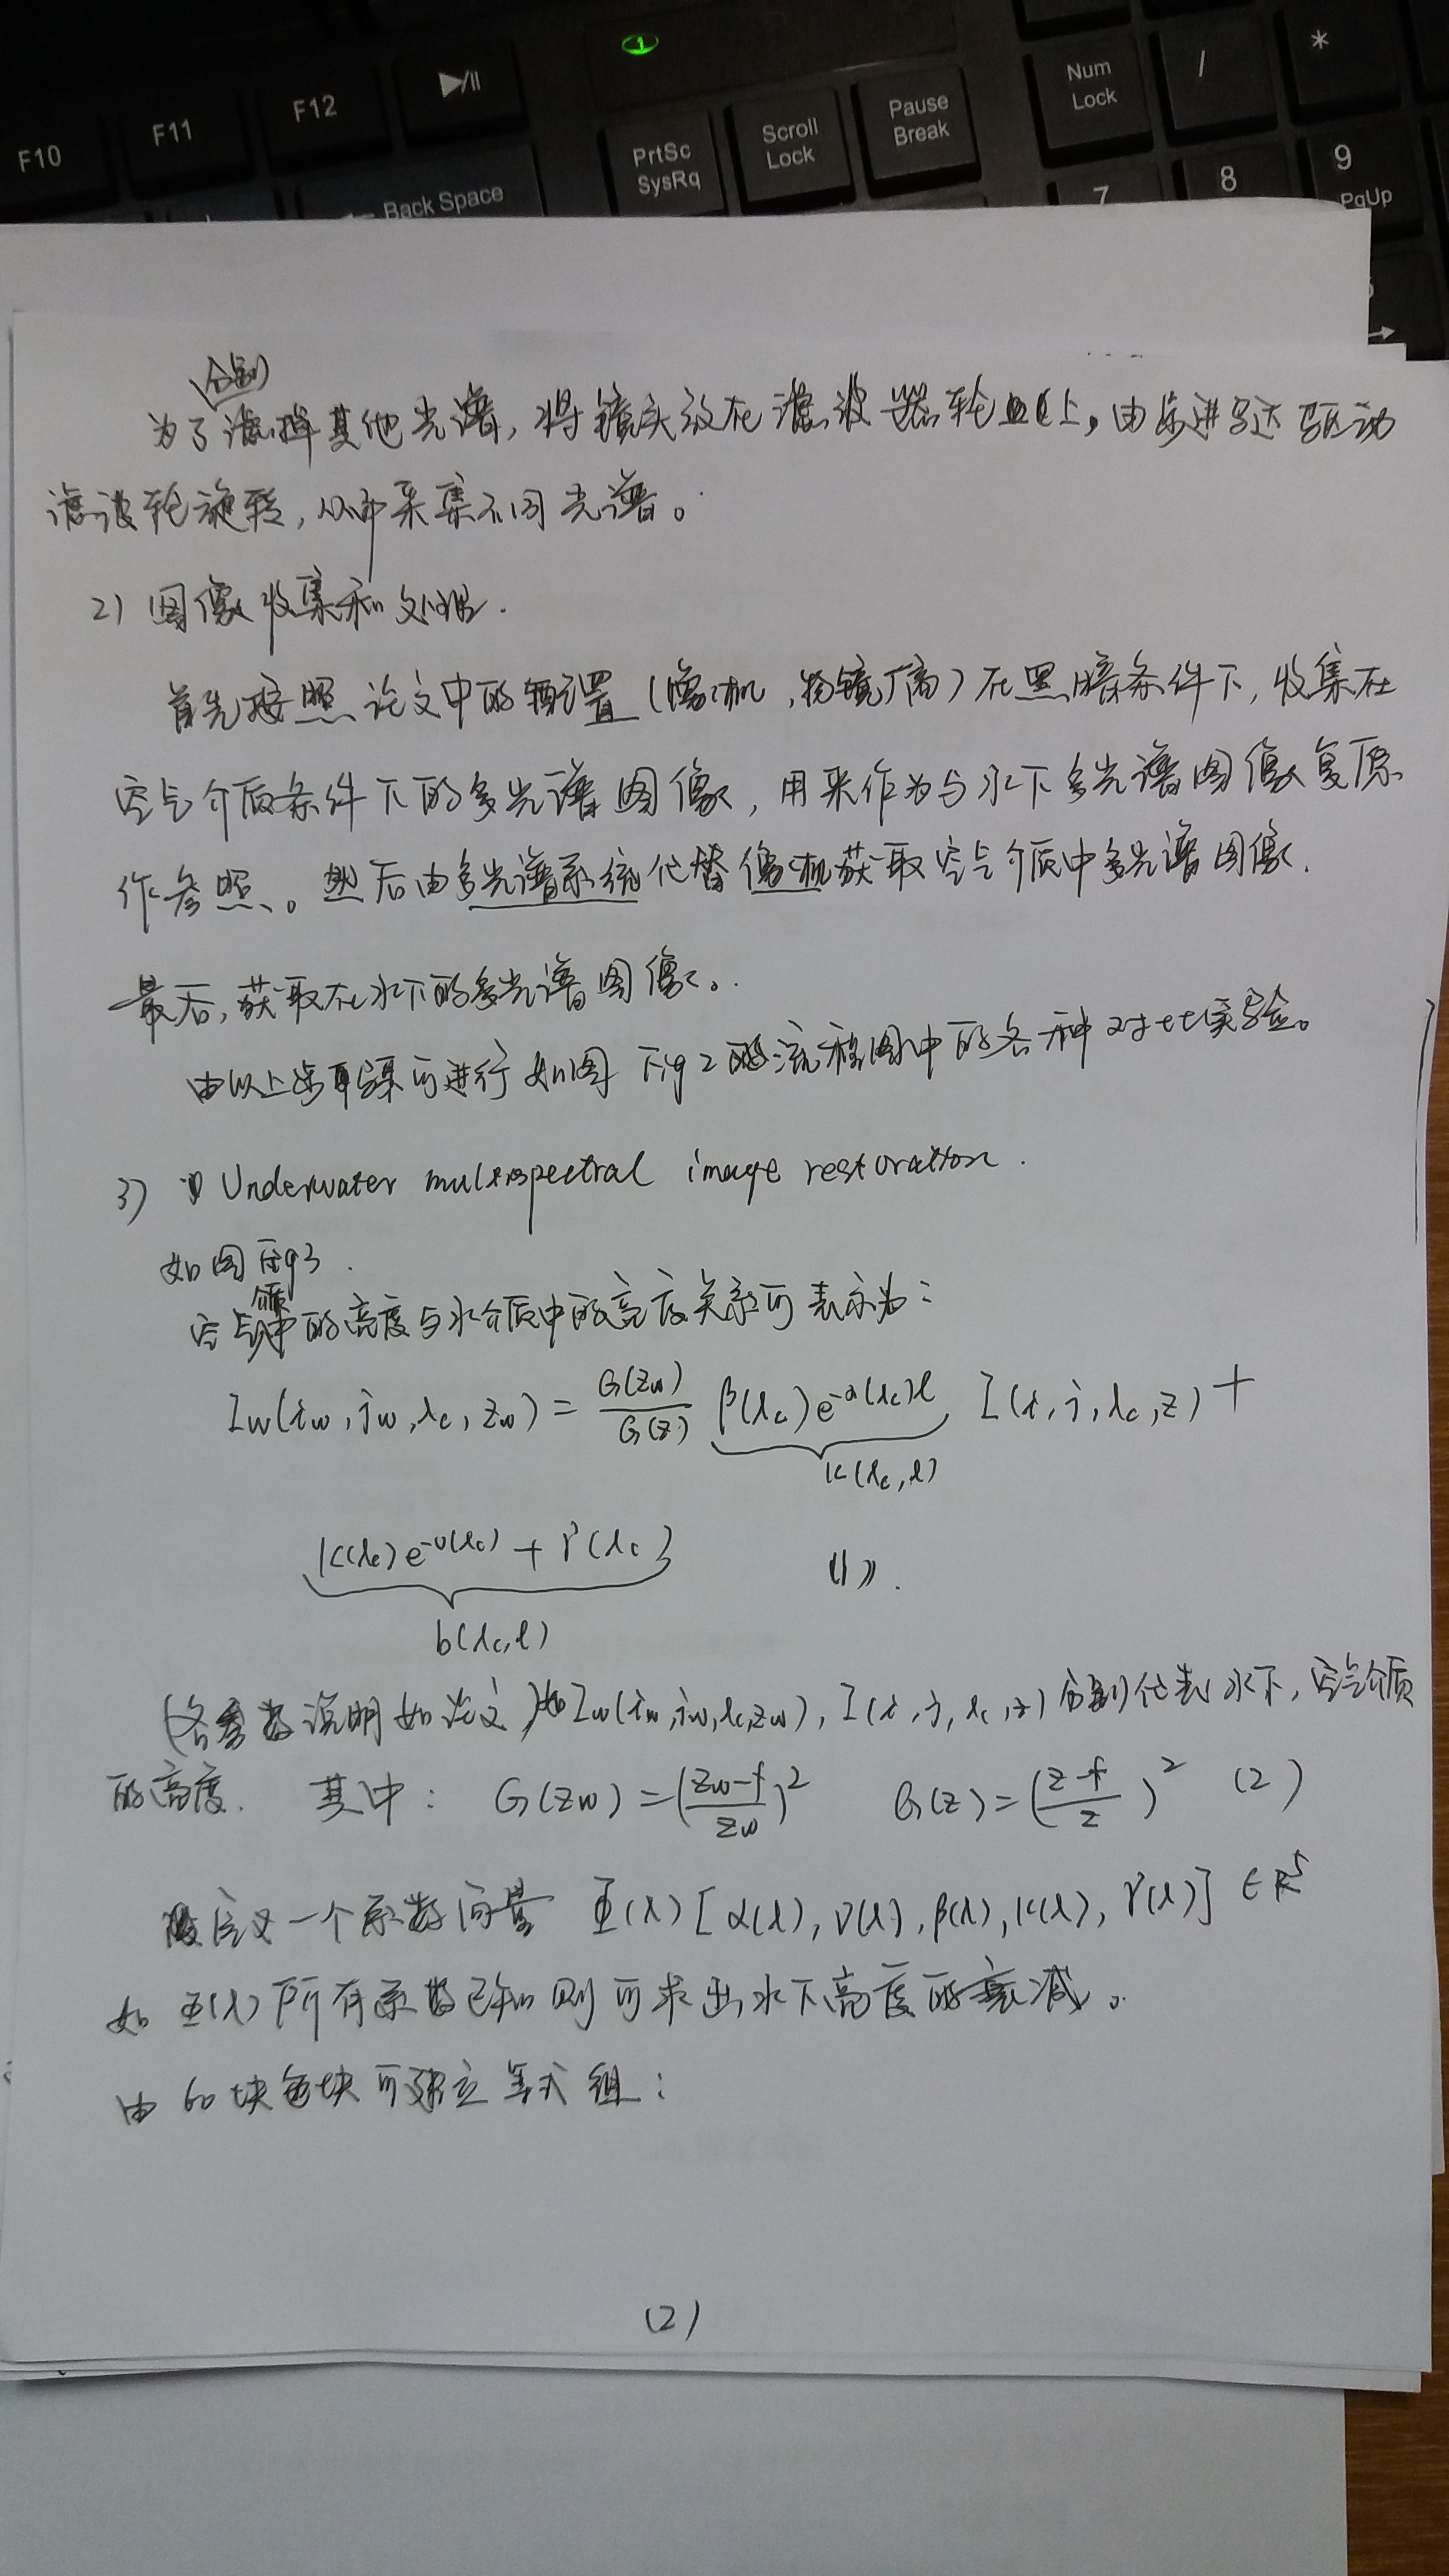 F10
F11
F12
▶/II
PrtSc
SysRq
Scroll
Lock
Pause
Break
Num
Lock
/
*
← Back Space
7
8
9
PgUp
分别
为了滤掉其他光谱,将镜头放在滤波器轮上,由步进马达驱动
滤波轮旋转,从而采集不同光谱。
2) 图像收集和处理.
首先按照论文中的配置(像机,物镜厂商)在黑暗条件下,收集在
空气介质条件下的多光谱图像,用来作为与水下多光谱图像复原
作参照。然后由多光谱系统代替像机获取空气介质中多光谱图像.
最后,获取在水下的多光谱图像。
由以上步骤可进行如图 Fig 2 的流程图中的各种对比实验。
3) Underwater multispectral image restoration.
如图 Fig3.
空气介质中的亮度与水介质中的亮度关系可表示为:
Iw(iw, jw, λc, zw) = G(zw)/G(z) β(λc)e^-α(λc)l I(i, j, λc, z) +
K(λc, l)
K(λc)e^-υ(λc) + γ(λc)
(1).
b(λc, l)
(各参数说明如论文)如 Iw(iw, jw, λc, zw), I(i, j, λc, z) 分别代表水下,空气介质
的亮度. 其中: G(zw) = ((zw-f)/zw)^2 G(z) = ((z-f)/z)^2 (2)
定义一个系数向量 Φ(λ) [α(λ), υ(λ), β(λ), K(λ), γ(λ)] ∈ R^5
如 Φ(λ) 所有系数已知则可求出水下亮度的衰减。
由 60 块色块可建立等式组:
(2)